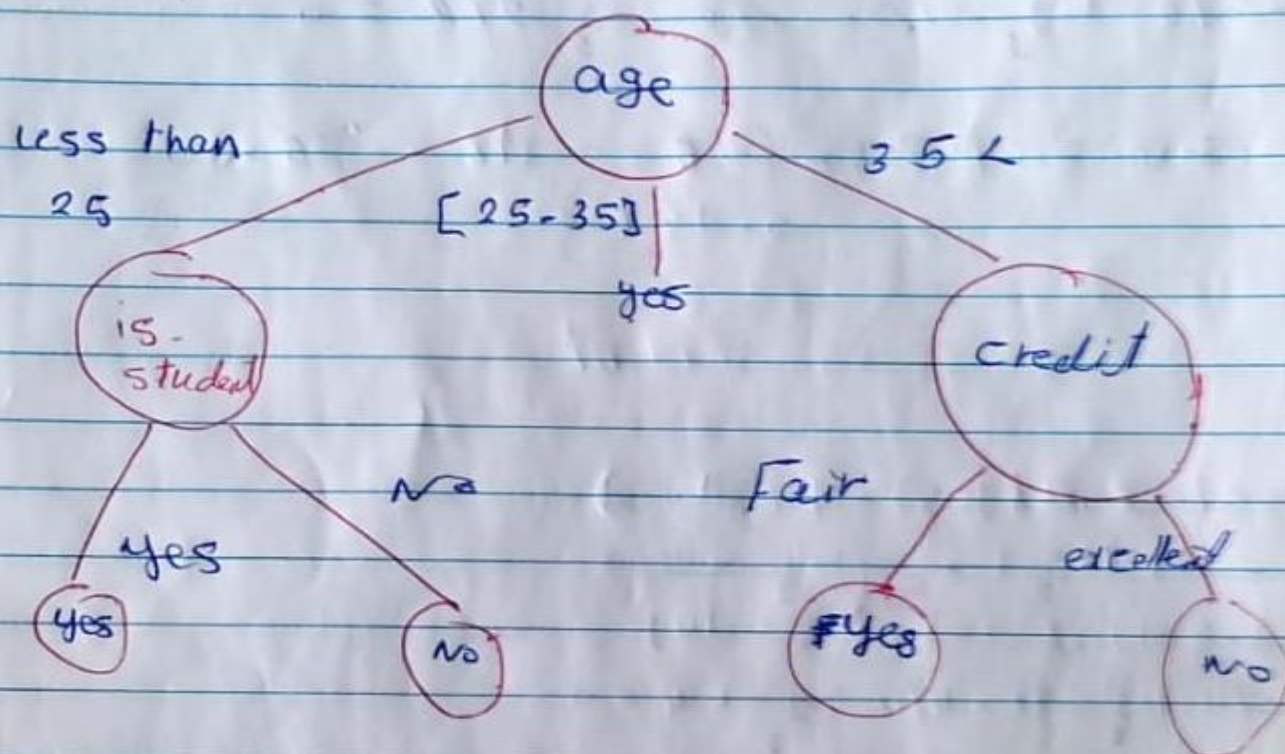 age
less than
25
[25-35]
35<
yes
is-
student
credit
No
Fair
yes
excellent
yes
No
yes
No